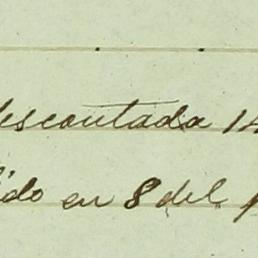 descontada 14
ido en 8 del